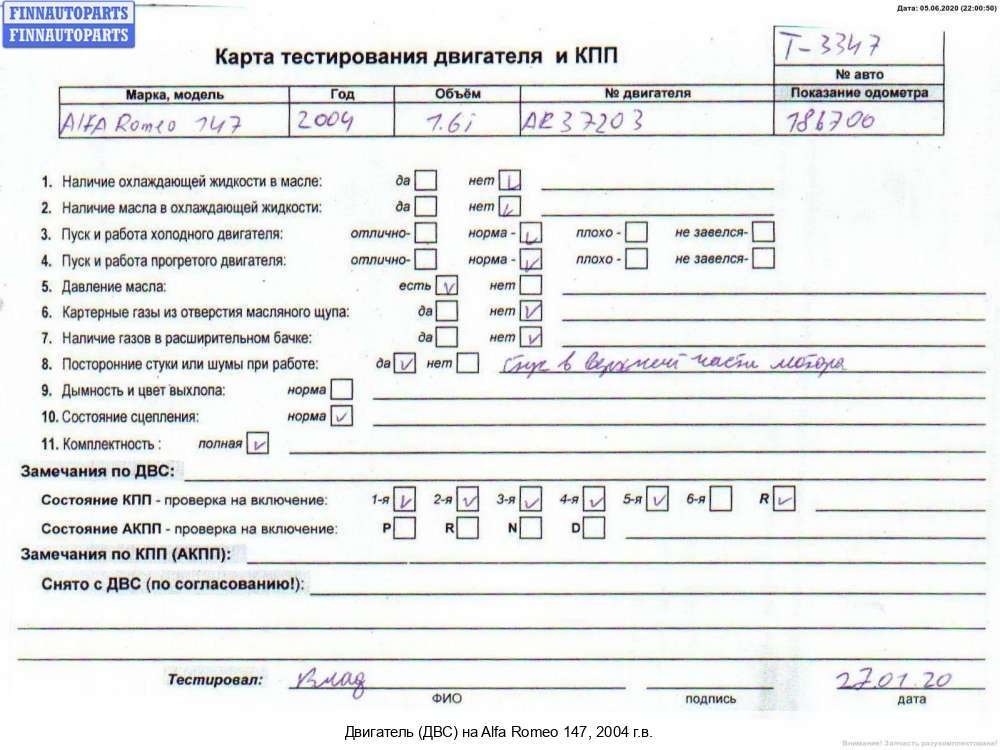 FINNAUTOPARTS
FINNAUTOPARTS
Дата: 05.06.2020 (22:00:50)
Карта тестирования двигателя и КПП
T-3347
№ авто
Марка, модель Год Объём № двигателя Показание одометра
Alfa Romeo 147 2004 1.6i AR37203 186700
1. Наличие охлаждающей жидкости в масле: да нет
2. Наличие масла в охлаждающей жидкости: да нет
3. Пуск и работа холодного двигателя: отлично- норма - плохо - не завелся-
4. Пуск и работа прогретого двигателя: отлично- норма - плохо - не завелся-
5. Давление масла: есть нет
6. Картерные газы из отверстия масляного щупа: да нет
7. Наличие газов в расширительном бачке: да нет
8. Посторонние стуки или шумы при работе: да нет Стук в верхней части мотора
9. Дымность и цвет выхлопа: норма
10. Состояние сцепления: норма
11. Комплектность : полная
Замечания по ДВС:
Состояние КПП - проверка на включение: 1-я 2-я 3-я 4-я 5-я 6-я R
Состояние АКПП - проверка на включение: P R N D
Замечания по КПП (АКПП):
Снято с ДВС (по согласованию!):
Тестировал: Влад 27.01.20
ФИО подпись дата
Двигатель (ДВС) на Alfa Romeo 147, 2004 г.в.
Внимание! Запчасть разукомплектована!